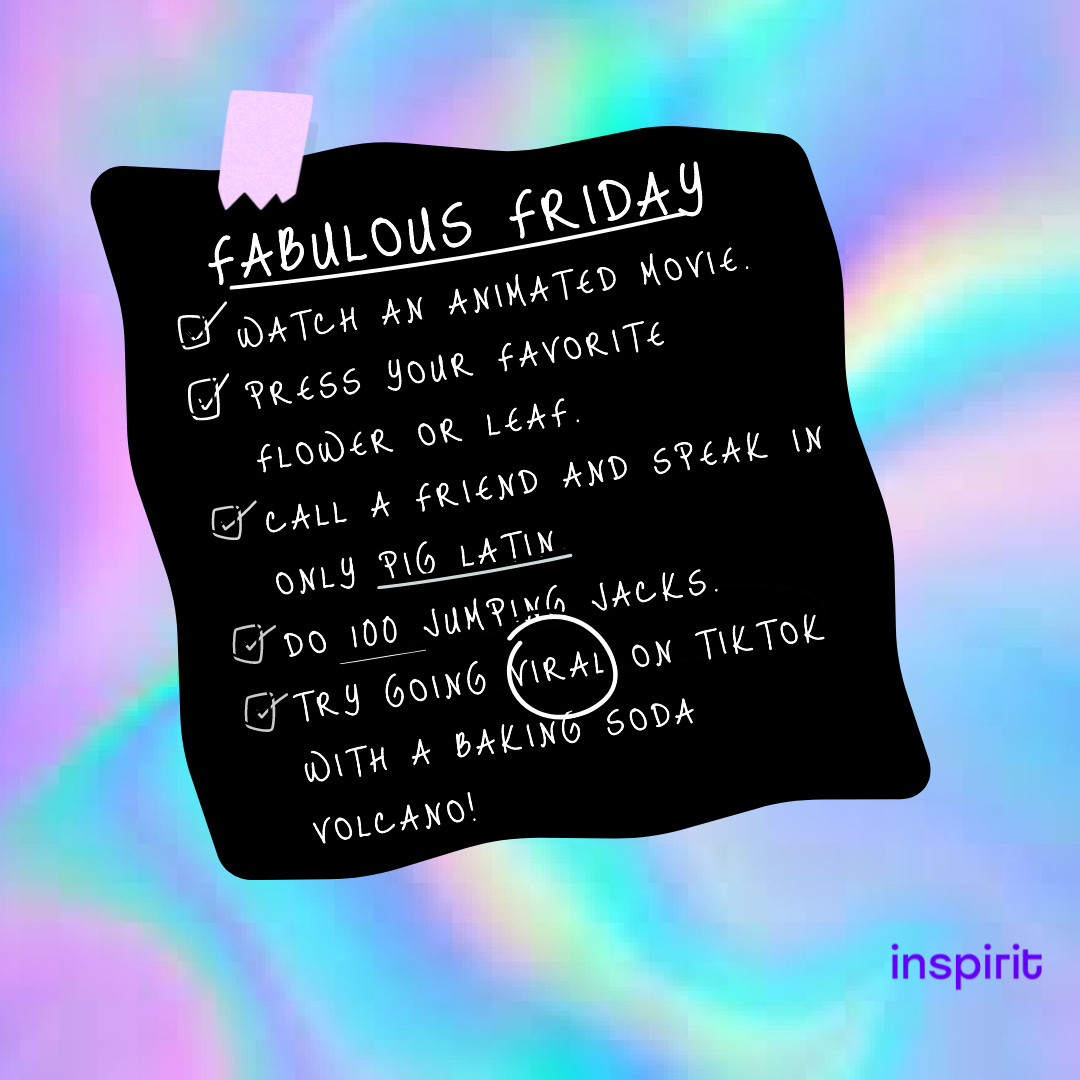 FABULOUS FRIDAY
WATCH AN ANIMATED MOVIE.
PRESS YOUR FAVORITE
FLOWER OR LEAF.
CALL A FRIEND AND SPEAK IN
ONLY PIG LATIN
DO 100 JUMPING JACKS.
TRY GOING VIRAL ON TIKTOK
WITH A BAKING SODA
VOLCANO!
inspirit